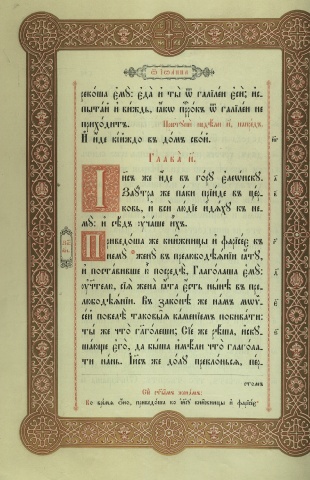 Ѿ І҆ѡа́нна
реко́ша є҆мꙋ̀: є҆да̀ и҆ ты̀ ѿ галїле́и є҆сѝ; и҆с-
пыта́й и҆ ви́ждь, ꙗ҆́кѡ прⷪ҇ро́къ ѿ галїле́и не
прихо́дитъ.
И҆ и҆́де кі́йждо въ до́мъ сво́й.
Глава̀ и҃.
І҆и҃съ же и҆́де въ го́рꙋ є҆леѡ́нскꙋ.
Заꙋ́тра же па́ки прїи́де въ це́р-
ковь, и҆ всѝ лю́дїе и҆дѧ́хꙋ къ не-
мꙋ̀: и҆ сѣ́дъ ᲂу҆ча́ше и҆̀хъ.
Приведо́ша же кни́жницы и҆ фарїсе́є къ
немꙋ̀ женꙋ̀ въ прелюбодѣѧ́нїи ꙗ҆́тꙋ,
и҆ поста́вивше ю҆̀ посредѣ̀, Глаго́лаша є҆мꙋ̀:
ᲂу҆чт҃лю, сїѧ̀ жена̀ ꙗ҆́та є҆́сть нн҃ѣ въ пре-
любодѣѧ́нїи. Въ зако́нѣ же на́мъ мѡѷ-
се́й повелѣ̀ таковы̑ѧ ка́менїемъ побива́ти:
ты́ же что̀ глаго́леши; Сїе́ же рѣ́ша, и҆скꙋ-
ша́юще є҆го̀, да бы́ша и҆мѣ́ли что̀ глаго́ла-
ти на́нь. І҆и҃съ же до́лꙋ прекло́ньсѧ, пер-
стомъ
Во вре́мѧ ѻ҆́но, приведо́ша ко і҆и҃сꙋ кни́жницы и҆ фарїсе́є